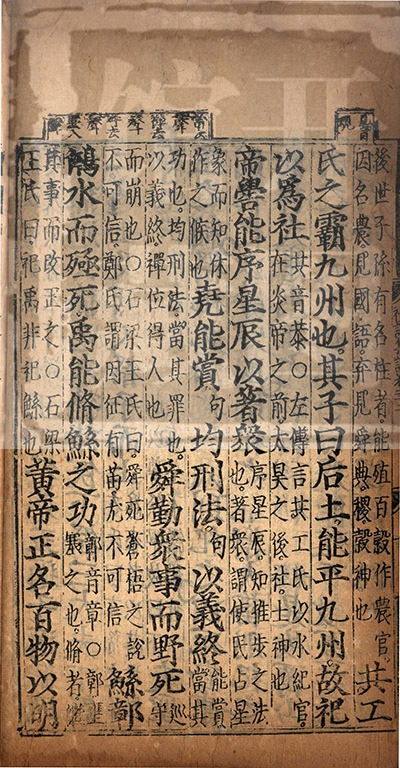 後世子孫有名柱者。能殖百穀作農官。
因名農見國語。弃見舜典。稷穀神也
共工
氏之霸九州也。其子曰后土。能平九州。故祀
以爲社
共音恭○左傳言共工氏以水紀官。
在炎帝之前太昊之後。社。土神也
帝嚳能序星辰以著衆
序星辰。知推步之法
也。著衆。謂使民占星
象而知休
作之候也
堯能賞句均刑法句以義終
能賞當其
功也。均刑法。當其罪也。
以義終。禪位得人也
舜勤衆事而野死
巡守
而崩也○石梁王氏曰。舜死蒼梧之說
不可信。鄭氏謂因征有苗尤不可信
鯀鄣
鴻水而殛死。禹能脩鯀之功
鄣音章○鄣壅
之也。脩者繼
其事而改正之○石梁
王氏曰。祀禹非祀鯀也
黃帝正名百物以明